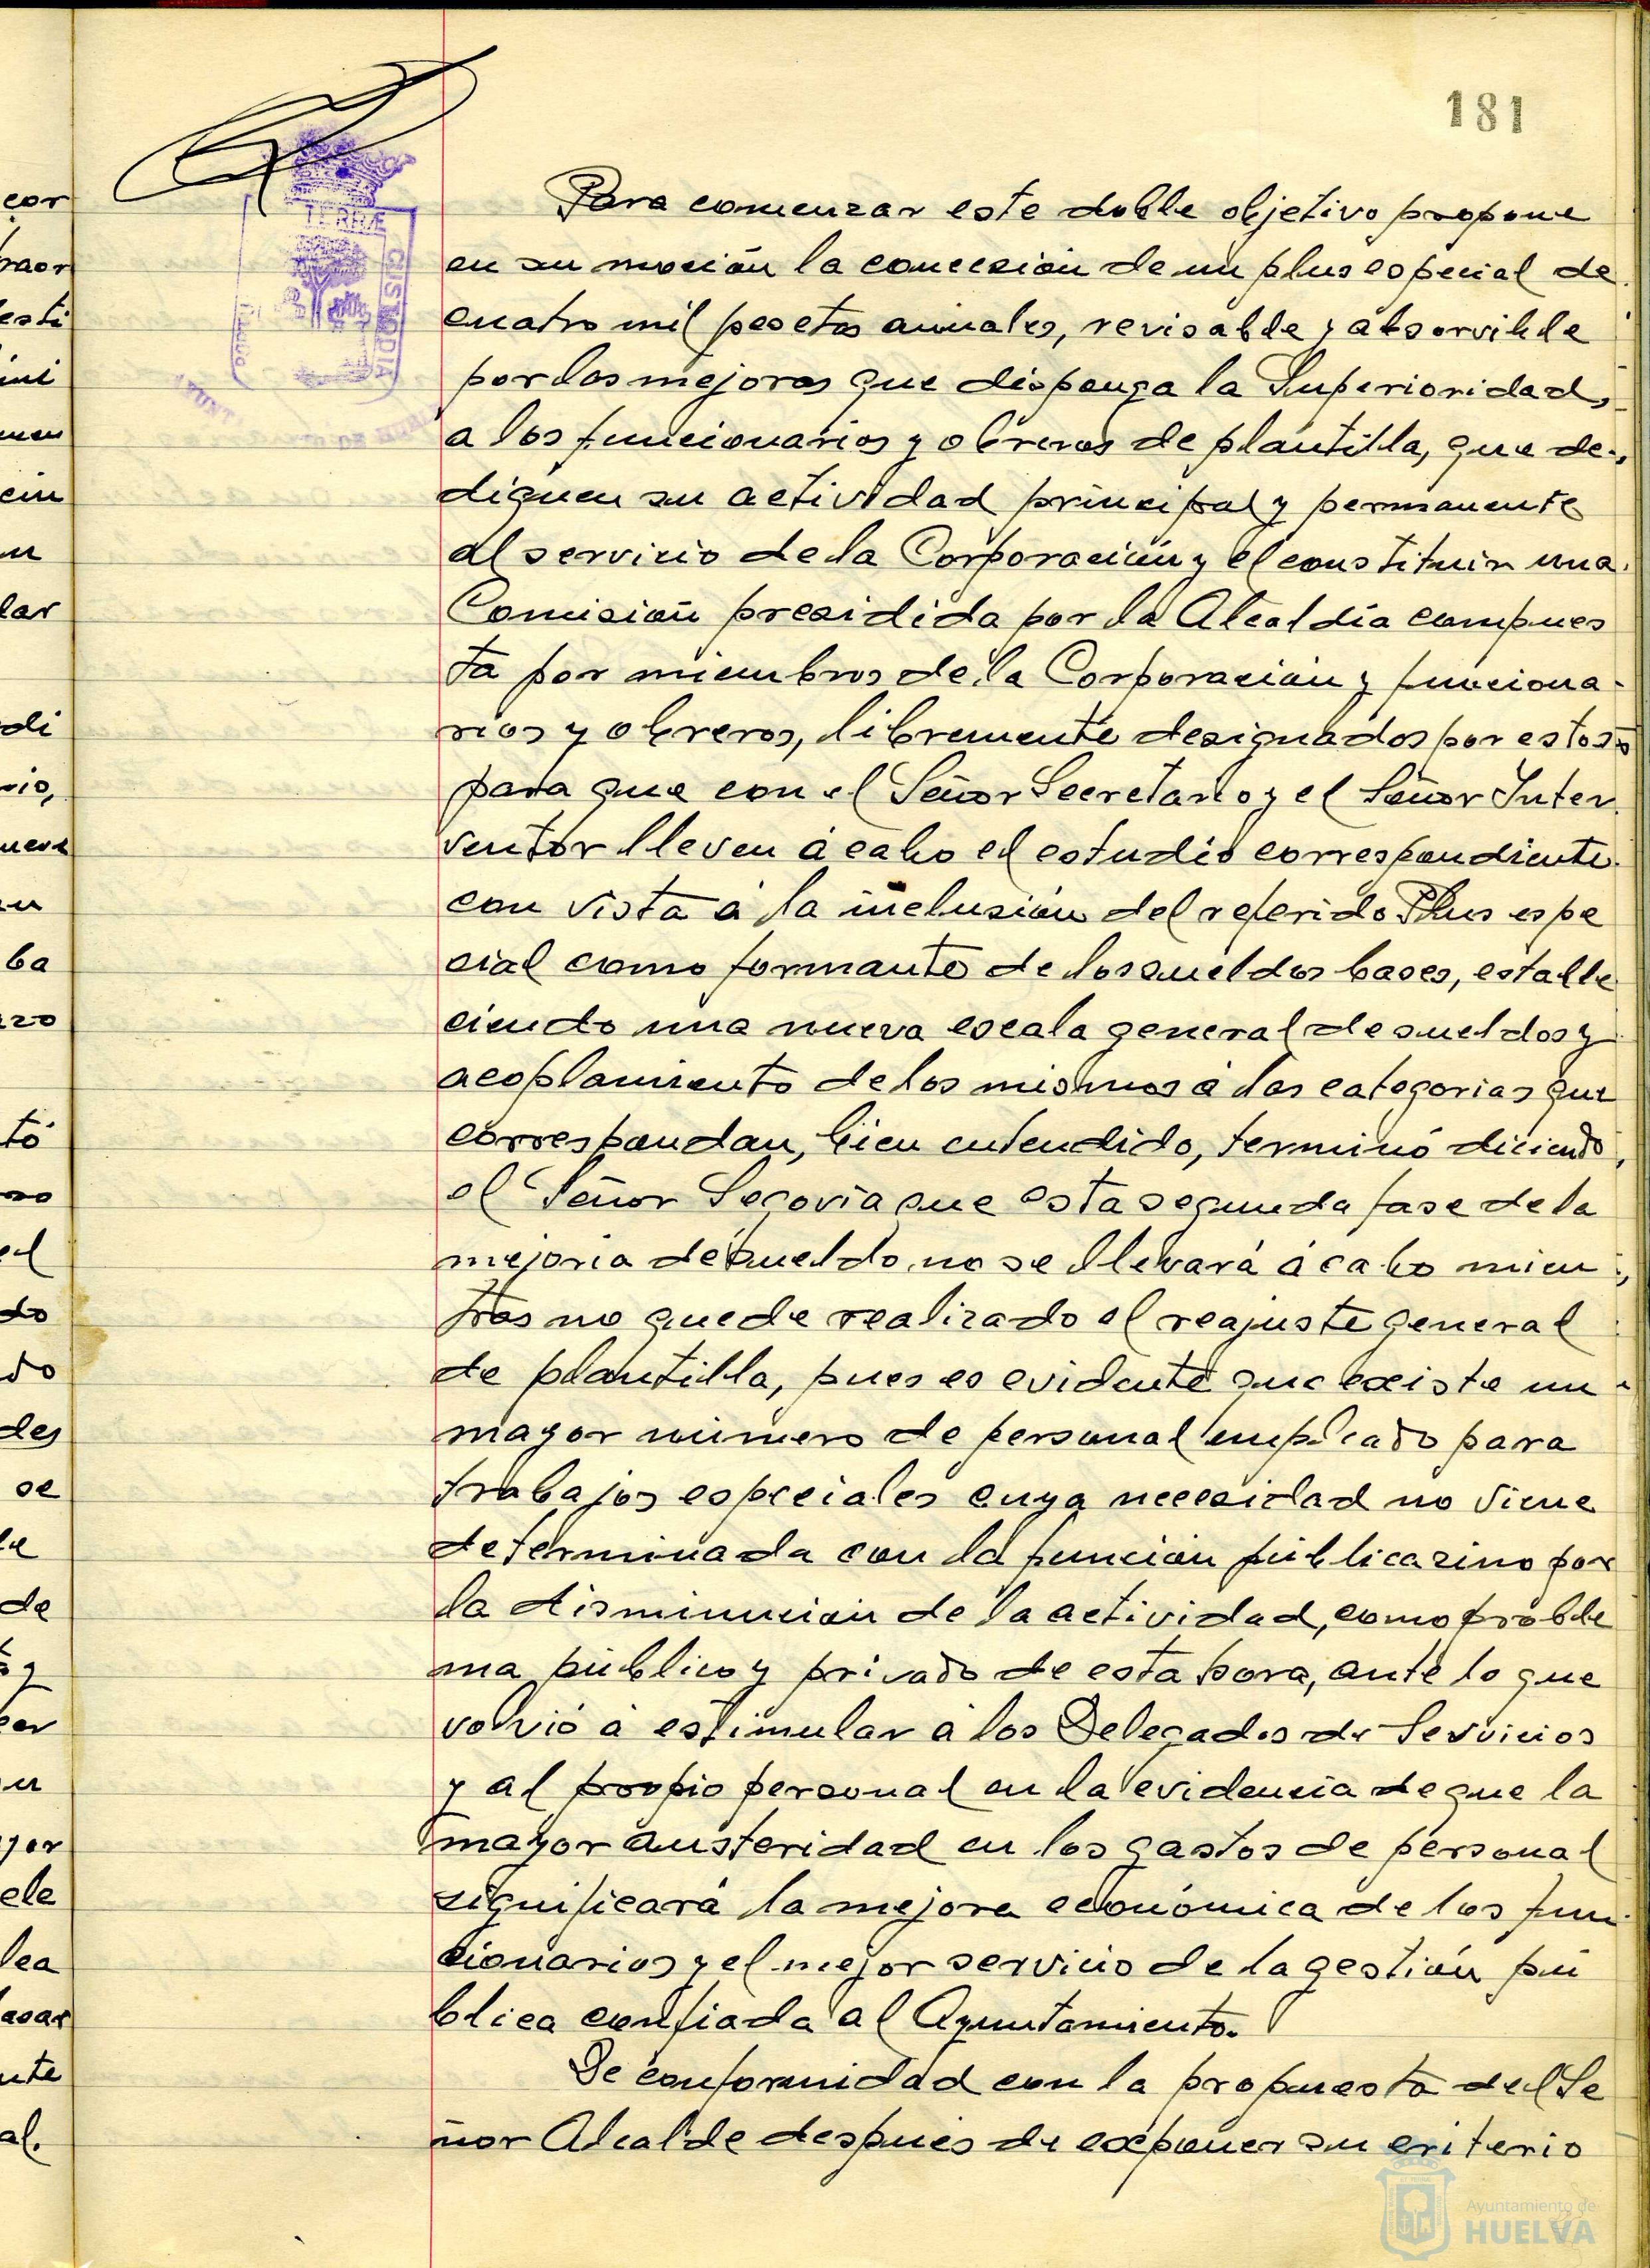 181
Para comenzar este doble objetivo propone
en su moción la concesión de un plus especial de
cuatro mil pesetas anuales, revisable y absorvible
por las mejoras que disponga la Superioridad,
a los funcionarios y obreros de plantilla, que de-
diquen su actividad principal y permanente
al servicio de la Corporación y el constituir una
Comisión presidida por la Alcaldía compues
ta por miembros de la Corporación y funciona-
rios y obreros, libremente designados por estos
para que con el Señor Secretario y el Señor Inter
ventor lleven á cabo el estudio correspondiente
con vista á la inclusión del referido Plus espe
cial como formante de los sueldos bases, estable
ciendo una nueva escala general de sueldos y
acoplamiento de los mismos á las categorias que
correspondan, bien entendido, terminó diciendo
el Señor Segovia que esta segunda fase de la
mejoria de sueldo no se llevará á cabo mien
tras no quede realizado el reajuste general
de plantilla, pues es evidente que existe un
mayor número de personal empleado para
trabajos especiales cuya necesidad no viene
determinada con la función pública sino por
la disminución de la actividad, como proble
ma público y privado de esta hora, ante lo que
volvió á estimular á los Delegados de Servicios
y al propio personal en la evidencia de que la
mayor austeridad en los gastos de personal
significará la mejora económica de los fun
cionarios y el mejor servicio de la gestión pú
blica confiada al Ayuntamiento.
De conformidad con la propuesta del Se
ñor Alcalde después de exponer su criterio
TERRÆ
CUSTODIA
Ayuntamiento de
HUELVA